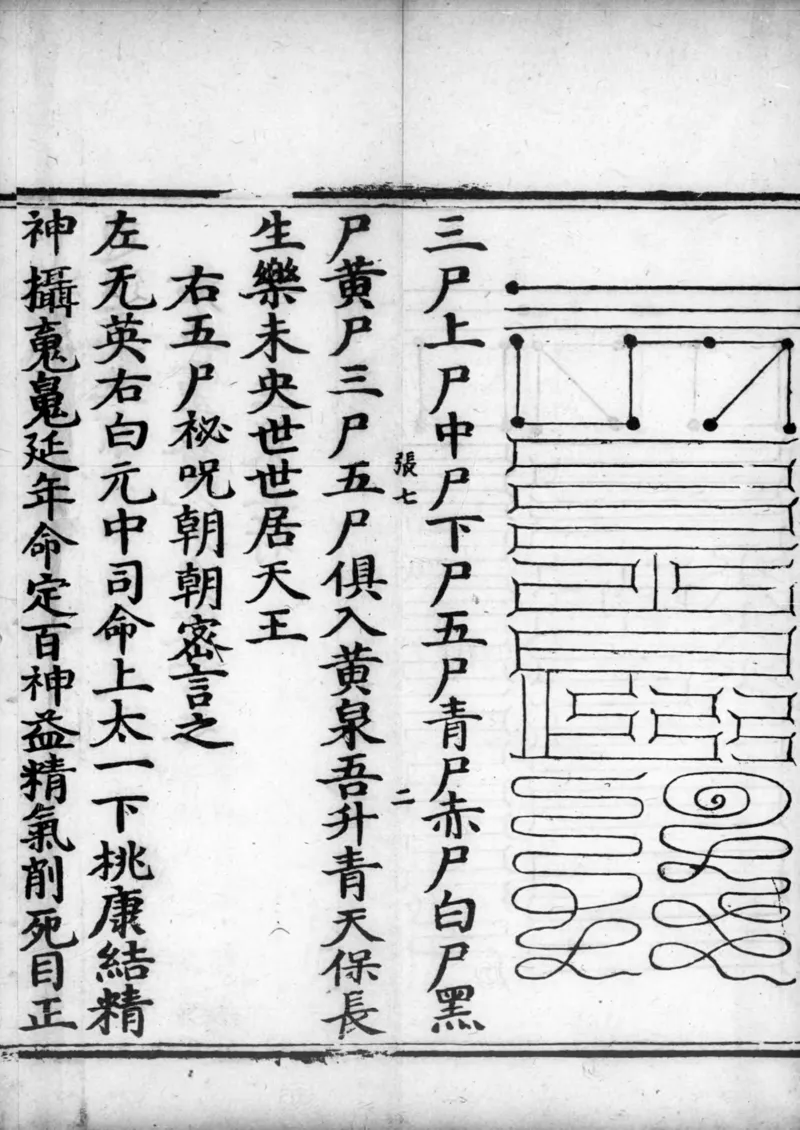 三尸上尸中尸下尸五尸青尸赤尸白尸黑
張七
二
尸黄尸三尸五尸俱入黄泉吾升青天保長
生樂未央世世居天王
右五尸祕呪朝朝密言之
左无英右白元中司命上太一下桃康結精
神攝䰟䰠延年命定百神益精氣削死目正